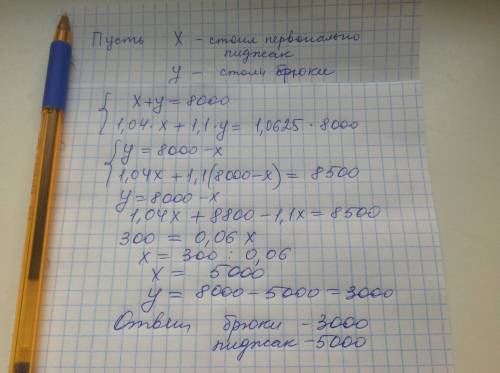 Пусть х - стоил первоначально
пиджак
у - стоили брюки
х+у = 8000
1,04·х + 1,1·у = 1,0625·8000
у = 8000-х
1,04х + 1,1(8000-х) = 8500
у = 8000-х
1,04х + 8800 - 1,1х = 8500
300 = 0,06х
х = 300 : 0,06
х = 5000
у = 8000 - 5000 = 3000
Ответ брюки - 3000
пиджак - 5000